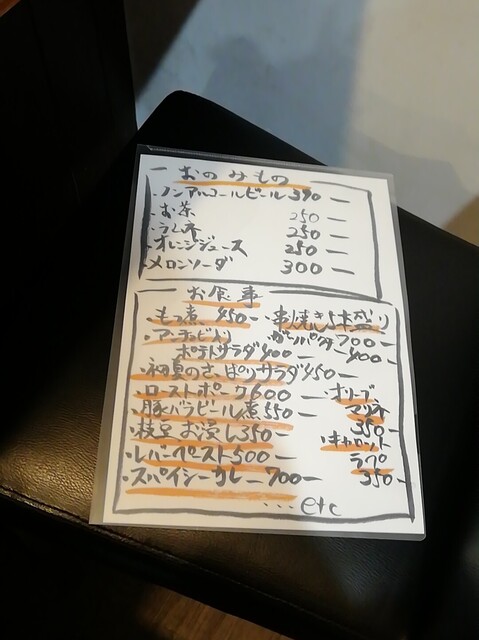 おのみもの
・ノンアルコールビール 390 ー
・お茶 250 ー
・ラムネ 250 ー
・オレンジジュース 250 ー
・メロンソーダ 300 ー
お食事
・もつ煮 450 ー
・串焼き5本盛り 700 ー
・アンチョビ入りポテトサラダ 400 ー
400 ー
・和風のさっぱりサラダ 450 ー
・ローストポーク 600 ー
・豚バラビール煮 550 ー
・枝豆お浸し 350 ー
・レバーペースト 500 ー
・スパイシーカレー 700 ー
・オリーブ
マリネ
350 ー
・キャロット
ラペ
350 ー
・・・etc